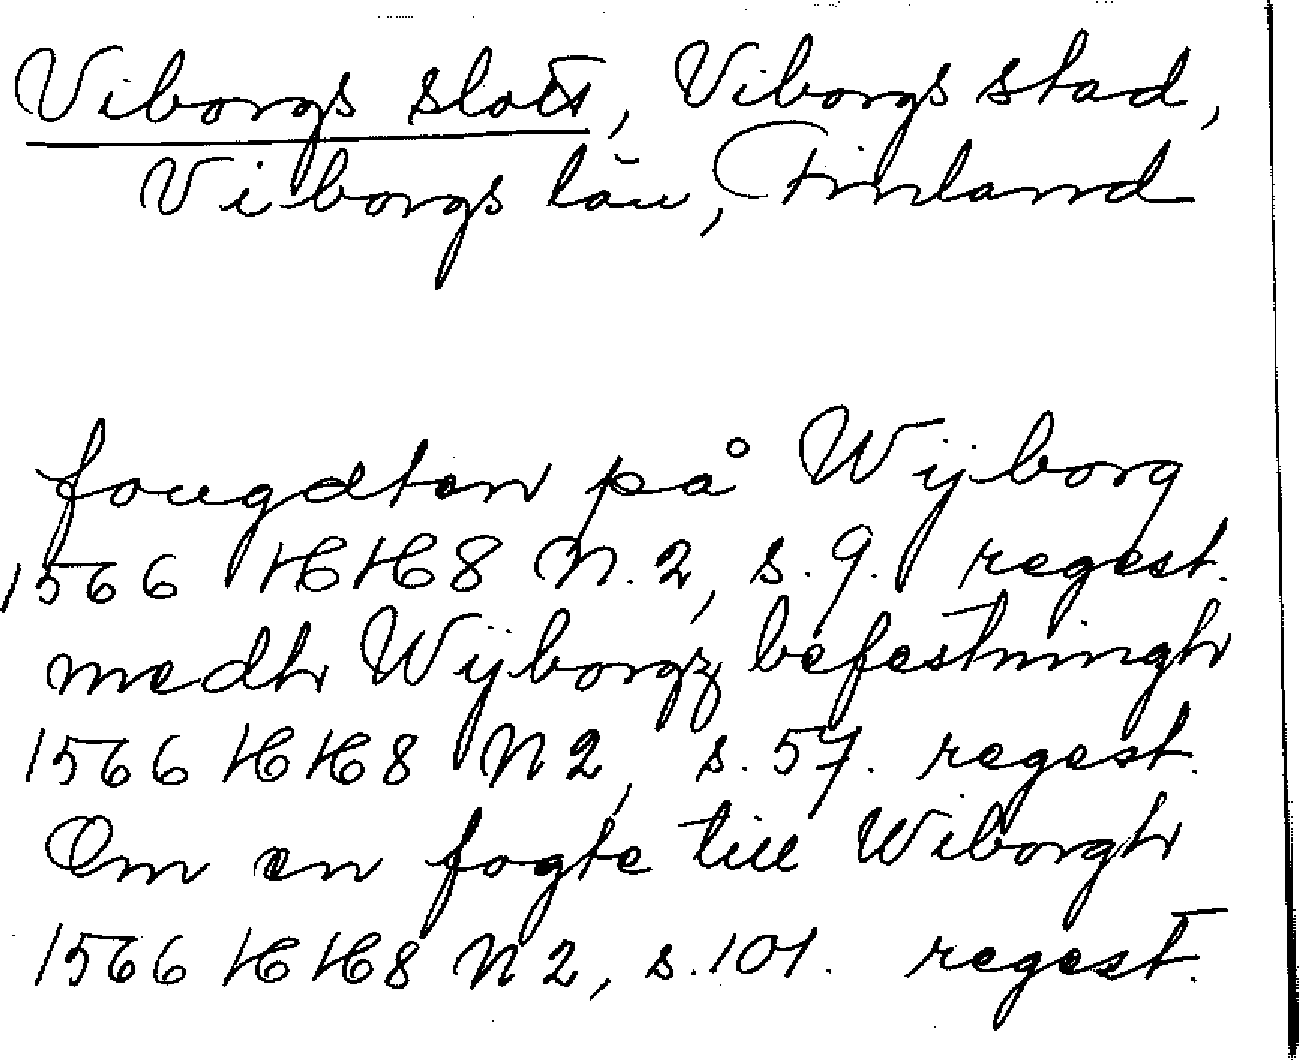 Viborgs slott, Viborgs stad,
Viborgs län, Finland
fougdten på Wijborg
1566 HH8 N. 2, s. 9. regest.
medh Wÿborgz befestningh
1566 HH8 N 2, s. 57. regest.
Om en fogte till Wiborgh
1566 HH8 N 2, s. 101. regest.